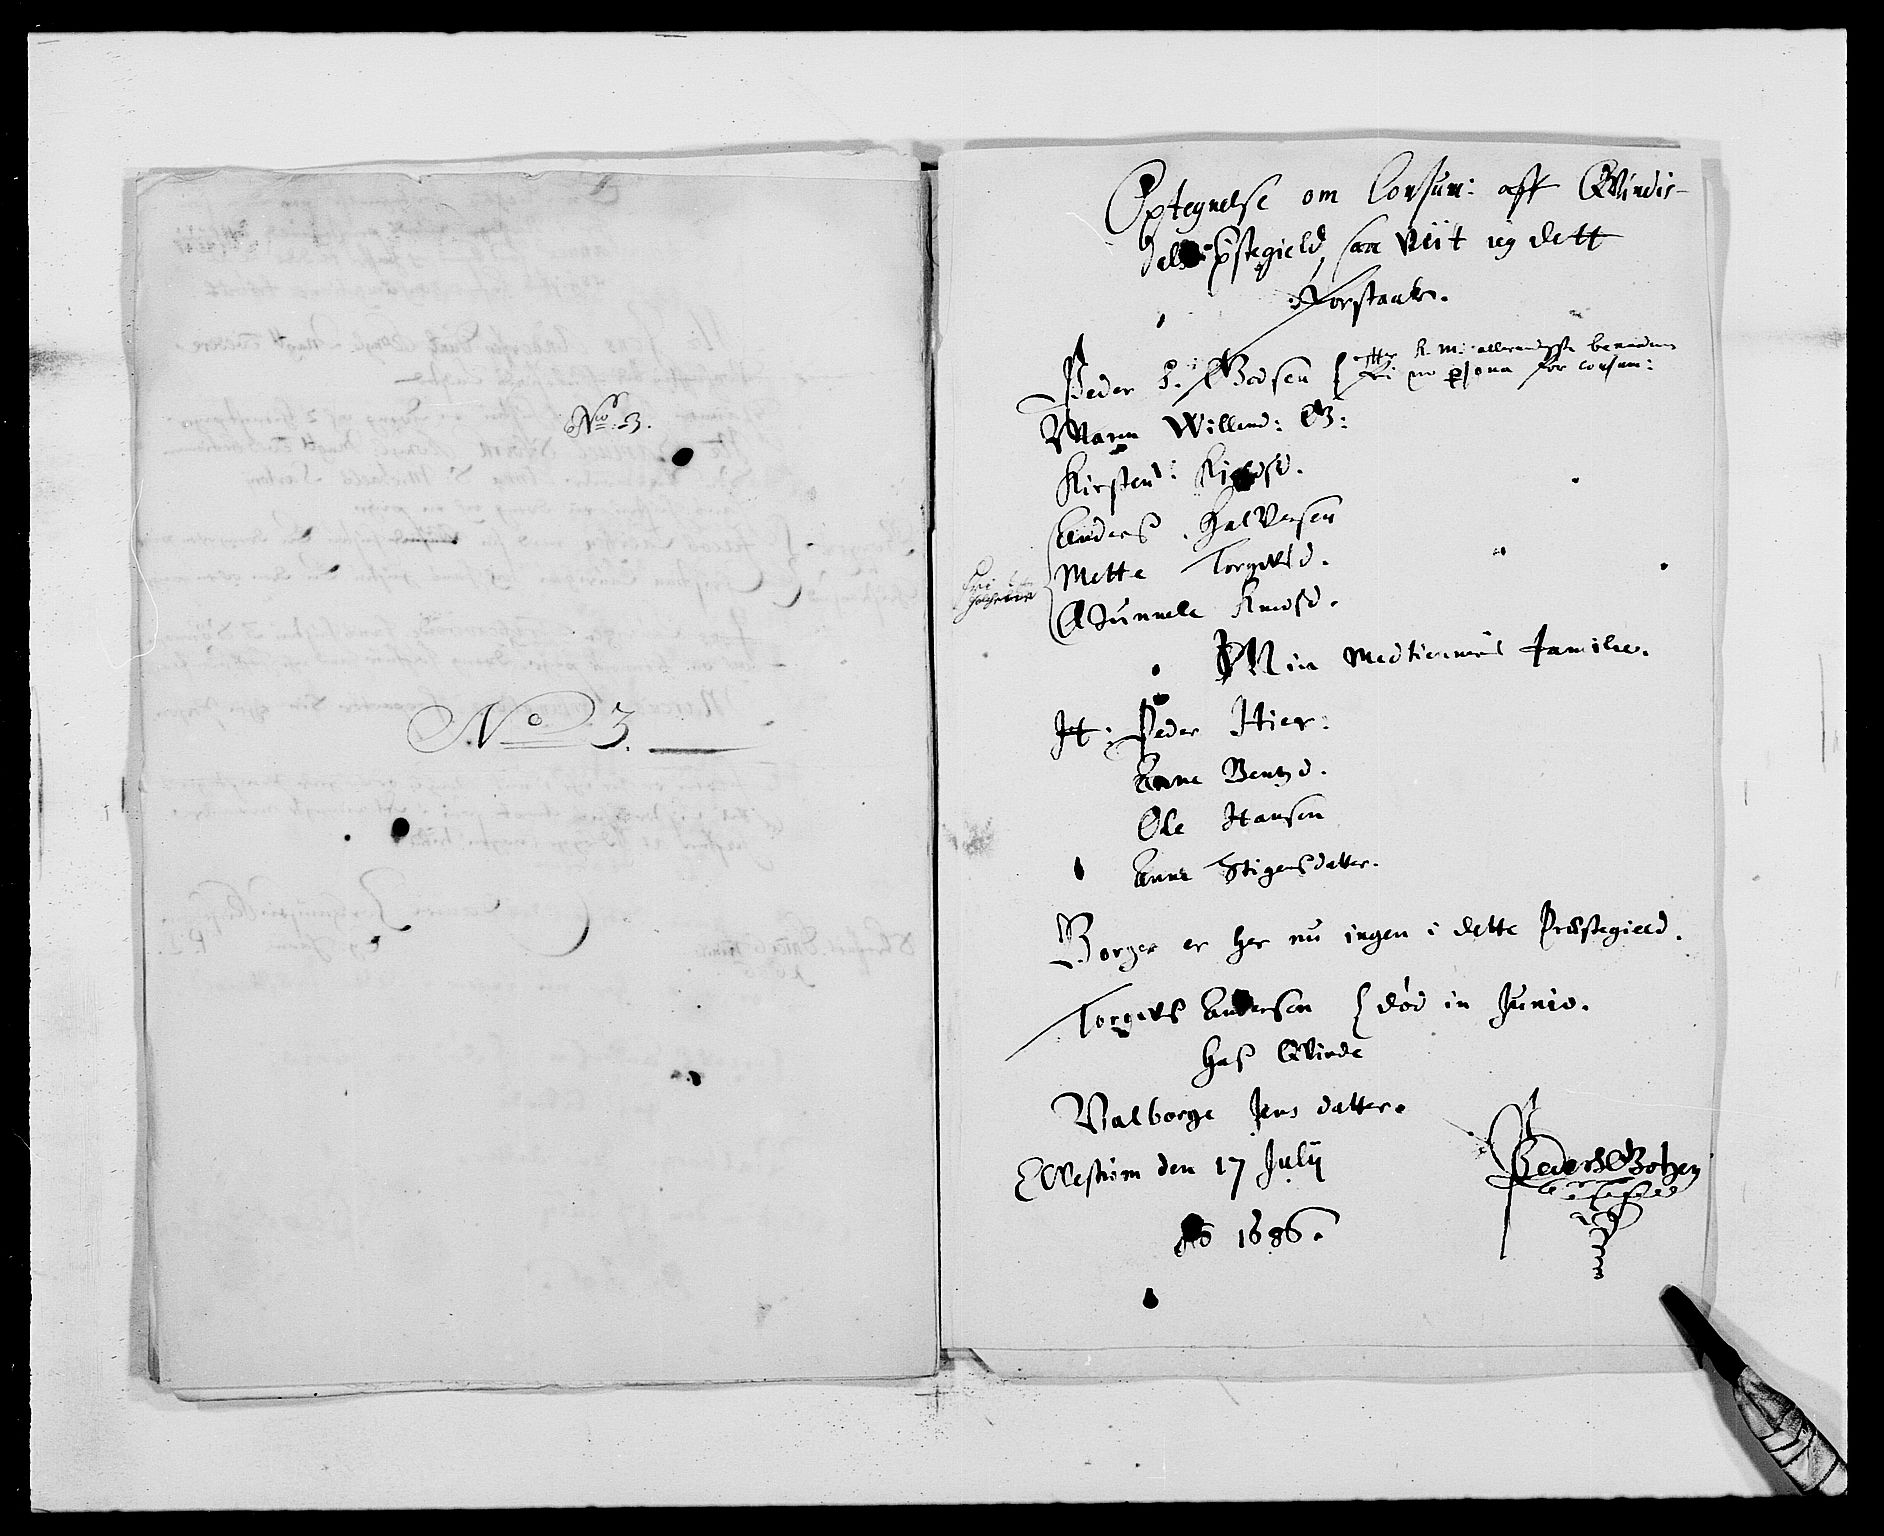 No: 3.
No 3.
Optegnelse om Consum: aff Qvindis-
dals pstegield, saa viit ieg dett
forstaaer.
Peder S. Godsen { efter K. M: allernaadigste benaadning
fri in persona for consum:
Maren Willumd: G:
Kirstend: Knudsd.
Anders Halvorsen
Mette Torgersd.
Gunnele Knudsd.
Min Medtieneris familie.
H: Peder Hier:
Anne Bentzd.
Ole Hansen
Anne Stigensdatter.
Borger er her nu ingen i dette Præstegield.
Torgers Andersen { død in Junio.
Hans Qvinde
Valborge Jens datter.
Øllestrøm den 17 July
Ao 1686.
Peder S Godtzen